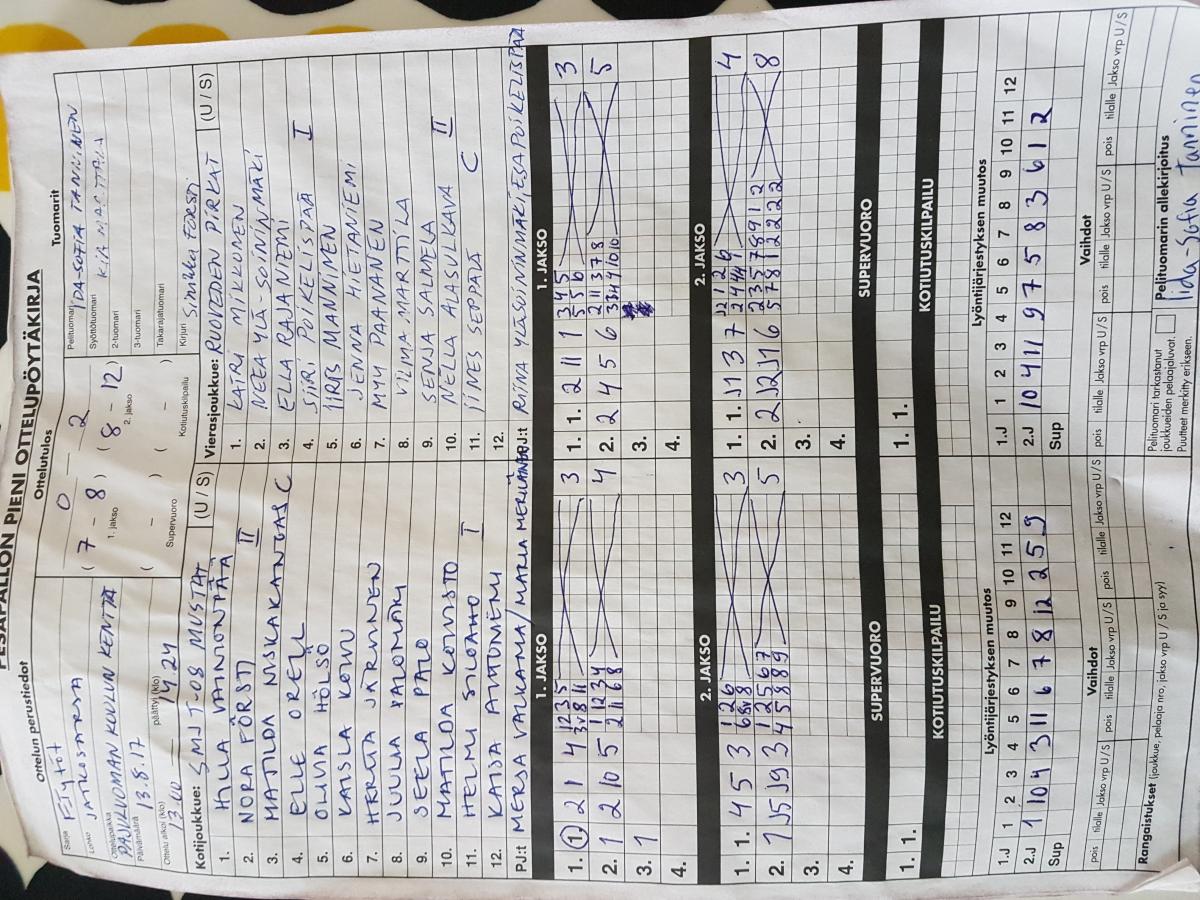 PESÄPALLON PIENI OTTELUPÖYTÄKIRJA
Ottelun perustiedot
Sarja Ftytöt
Lohko JATKOSARJA
Ottelupaikka PAJULUOMAN KOULUN KENTTÄ
Päivämäärä 13.8.17
Ottelu alkoi (klo) 13.00 päättyi (klo) 14.24
Ottelutulos
0 2
( 7 - 8 ) ( 8 - 12 )
1. jakso 2. jakso
( - ) ( - )
Supervuoro Kotiutuskilpailu
Tuomarit
Pelituomari IIDA-SOFIA TANNINEN
Syöttötuomari KIIA MARTTALA
2-tuomari
3-tuomari
Takarajatuomari
Kirjuri Sinikka FORSTI
Kotijoukkue: SMJ T-08 MUSTAT (U / S)
1. HILLA VAINIONPÄÄ
2. NORA FÖRSTI II
3. MATILDA NISKAKANGAS C
4. ELLE ORELL
5. OLIVIA HÖLSÖ
6. KAISLA KOIVU
7. HERTTA JÄRVINEN
8. JUULA JALOMÄKI
9. SEELA PALO
10. MATILDA KOIVISTO
11. HELMI SILOAHO I
12. KAISA ALATUNEMI
PJ:t MERJA VALKAMA / MARIA MERILÄINEN
Vierasjoukkue: RUOVEDEN PIRKAT (U / S)
1. LAURI MIKKONEN
2. NEEA YLÄ-SOININMÄKI
3. ELLA RAJANIEMI
4. SIIRI POIKELISPÄÄ I
5. IIRIS MANNINEN
6. JENNA HIETANIEMI
7. MYY PAANANEN
8. VILMA MARTTILA
9. SENJA SALMELA
10. NELLA ALASULKAVA II
11. IINES SEPPÄLÄ C
12.
PJ:t RIINA YLÄSOININMÄKI, ESA POIKELISPÄÄ
1. JAKSO 1. JAKSO
1. 1. 2 1 4 1 2 3 5 3
3 v 8 11
2. 1 2 10 5 1 2 3 4 4
2 11 6 8
3. 1
4.
1. 1. 2 11 1 3 4 5 3
5 5 6
2. 2 4 5 6 2 11 3 7 8 5
3 3 4 10 10
3.
4.
2. JAKSO 2. JAKSO
1. 1. 4 5 3 1 2 6 3
6 8 v 8
2. 7 JS J9 3 1 2 5 6 7 5
4 5 8 8 9
3.
4.
1. 1. J1 1 3 7 12 1 2 6 4
2 4 4 1
2. 2 J2 J1 6 2 3 5 7 8 9 1 12 8
5 7 8 1 2 2 2 2
3.
4.
SUPERVUORO SUPERVUORO
1. 1. 1. 1.
KOTIUTUSKILPAILU KOTIUTUSKILPAILU
Lyöntijärjestyksen muutos Lyöntijärjestyksen muutos
1 2 3 4 5 6 7 8 9 10 11 12 1 2 3 4 5 6 7 8 9 10 11 12
1.J 1.J
2.J 1 10 4 3 11 6 7 8 12 2 5 9 2.J 10 4 11 9 7 5 8 3 6 1 2
Sup Sup
Vaihdot Vaihdot
pois tilalle Jakso vrp U/S pois tilalle Jakso vrp U/S pois tilalle Jakso vrp U/S pois tilalle Jakso vrp U/S pois tilalle Jakso vrp U/S pois tilalle Jakso vrp U/S
Rangaistukset (joukkue, pelaaja nro, jakso vrp U / S ja syy)
Pelituomari tarkastanut
joukkueiden pelaajaluvat.
Puutteet merkitty erikseen.
Pelituomarin allekirjoitus
Iida-Sofia Tanninen